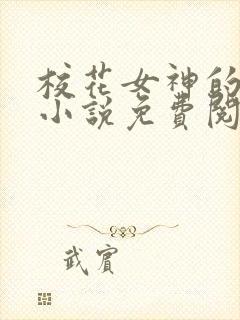 校花女神的
小說免費閱
武賓